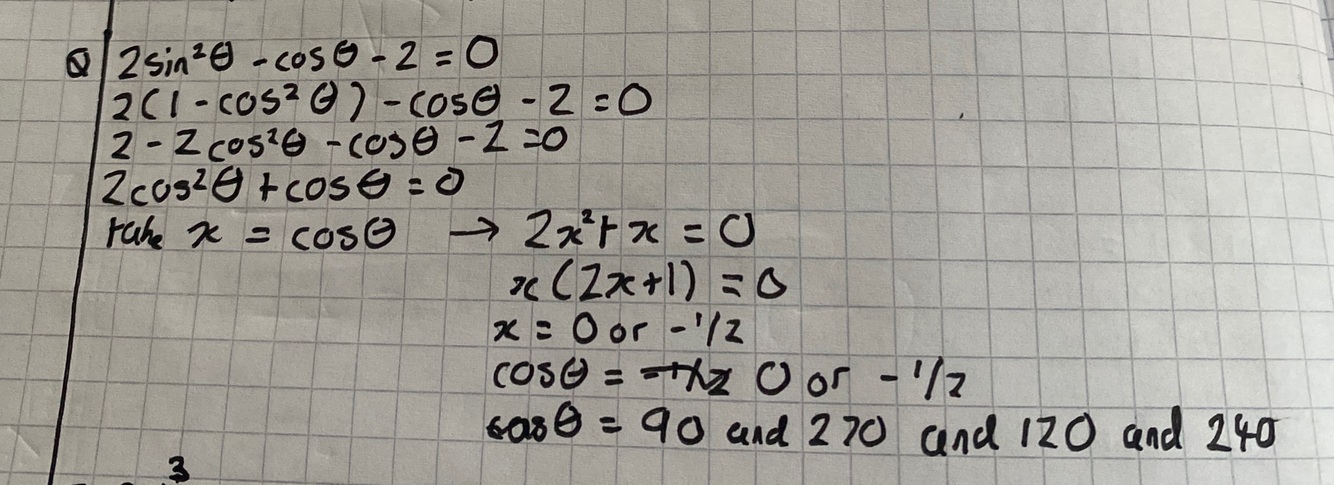 Q 2sin²θ - cosθ - 2 = 0
2(1 - cos²θ) - cosθ - 2 = 0
2 - 2cos²θ - cosθ - 2 = 0
2cos²θ + cosθ = 0
take x = cosθ → 2x² + x = 0
x(2x+1) = 0
x = 0 or -1/2
cosθ = 0 or -1/2
θ = 90 and 270 and 120 and 240
3